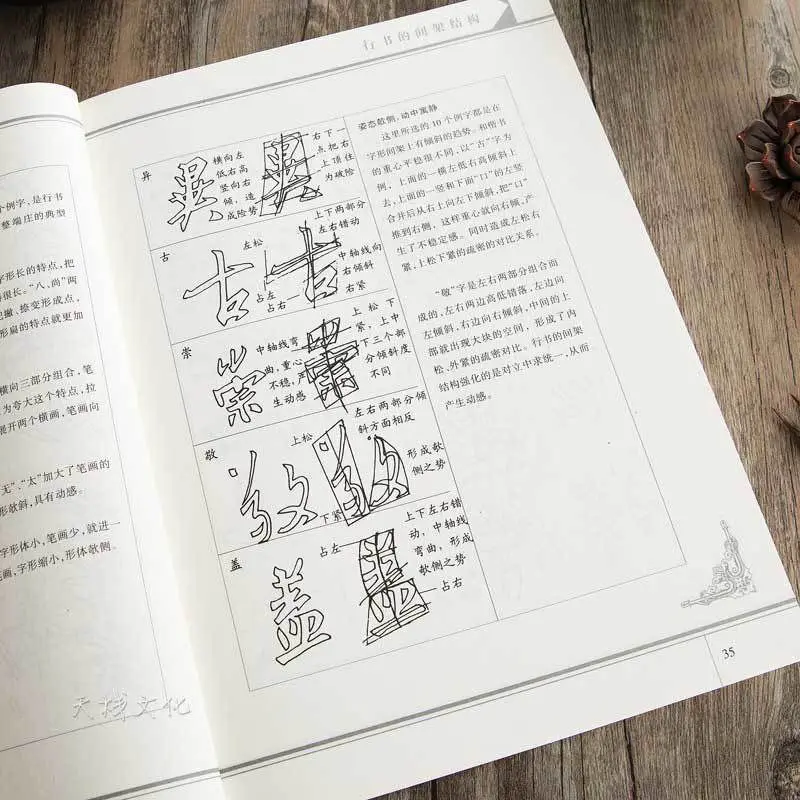 个例字，是行书
整端庄的典型
字形长的特点，把
得很长。“八、尚”两
把撇、捺变形成点，
形扁的特点就更加
横向三部分组合，笔
为夸大这个特点，拉
展开两个横画，笔画向
无”、“太”加大了笔画的
形欹斜，具有动感。
字形体小，笔画少，就进一
笔画，字形缩小，形体欹侧。
天梯文化
行书的间架结构
异
異
横向左
低右高
竖向右
倾，造
成险势
異
右下一
点把右
上顶住
为破险
古
左松
古
占左
占右
古
上下两部分
左右错动
中轴线向
右倾斜
右紧
崇
崇
中轴线弯
曲，重心
不稳，产
生动感
崇
上松下
紧，上中
下三个部
分倾斜度
不同
敬
上松
敬
下紧
敬
左右两部分倾
斜方面相反
形成欹
侧之势
盖
占左
盖
盖
上下左右错
动，中轴线
弯曲，形成
欹侧之势
占右
姿态欹侧，动中寓静
这里所选的10个例字都是在
字形间架上有倾斜的趋势。和楷书
的重心平稳很不同，以“古”字为
例，上面的一横左低右高倾斜上
去，上面的一竖和下面“口”的左竖
合并后从右上向左下倾斜，把“口”
推到右侧，这样重心就向右倾，产
生了不稳定感。同时造成左松右
紧，上松下紧的疏密的对比关系。
“敬”字是左右两部分组合而
成的，左右两边高低错落，左边向
左倾斜，右边向右倾斜，中间的上
部就出现大块的空间，形成了内
松、外紧的疏密对比。行书的间架
结构强化的是对立中求统一，从而
产生动感。
35